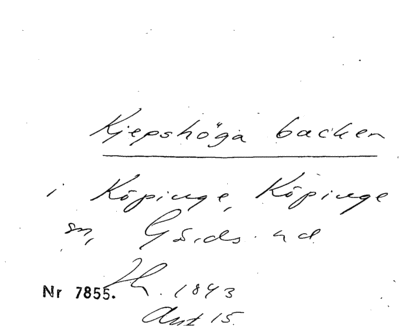 Kjepshöga backen
i Köpinge, Köpinge
sn, Gärds hd
Nr 7855. 1843
Ant 15